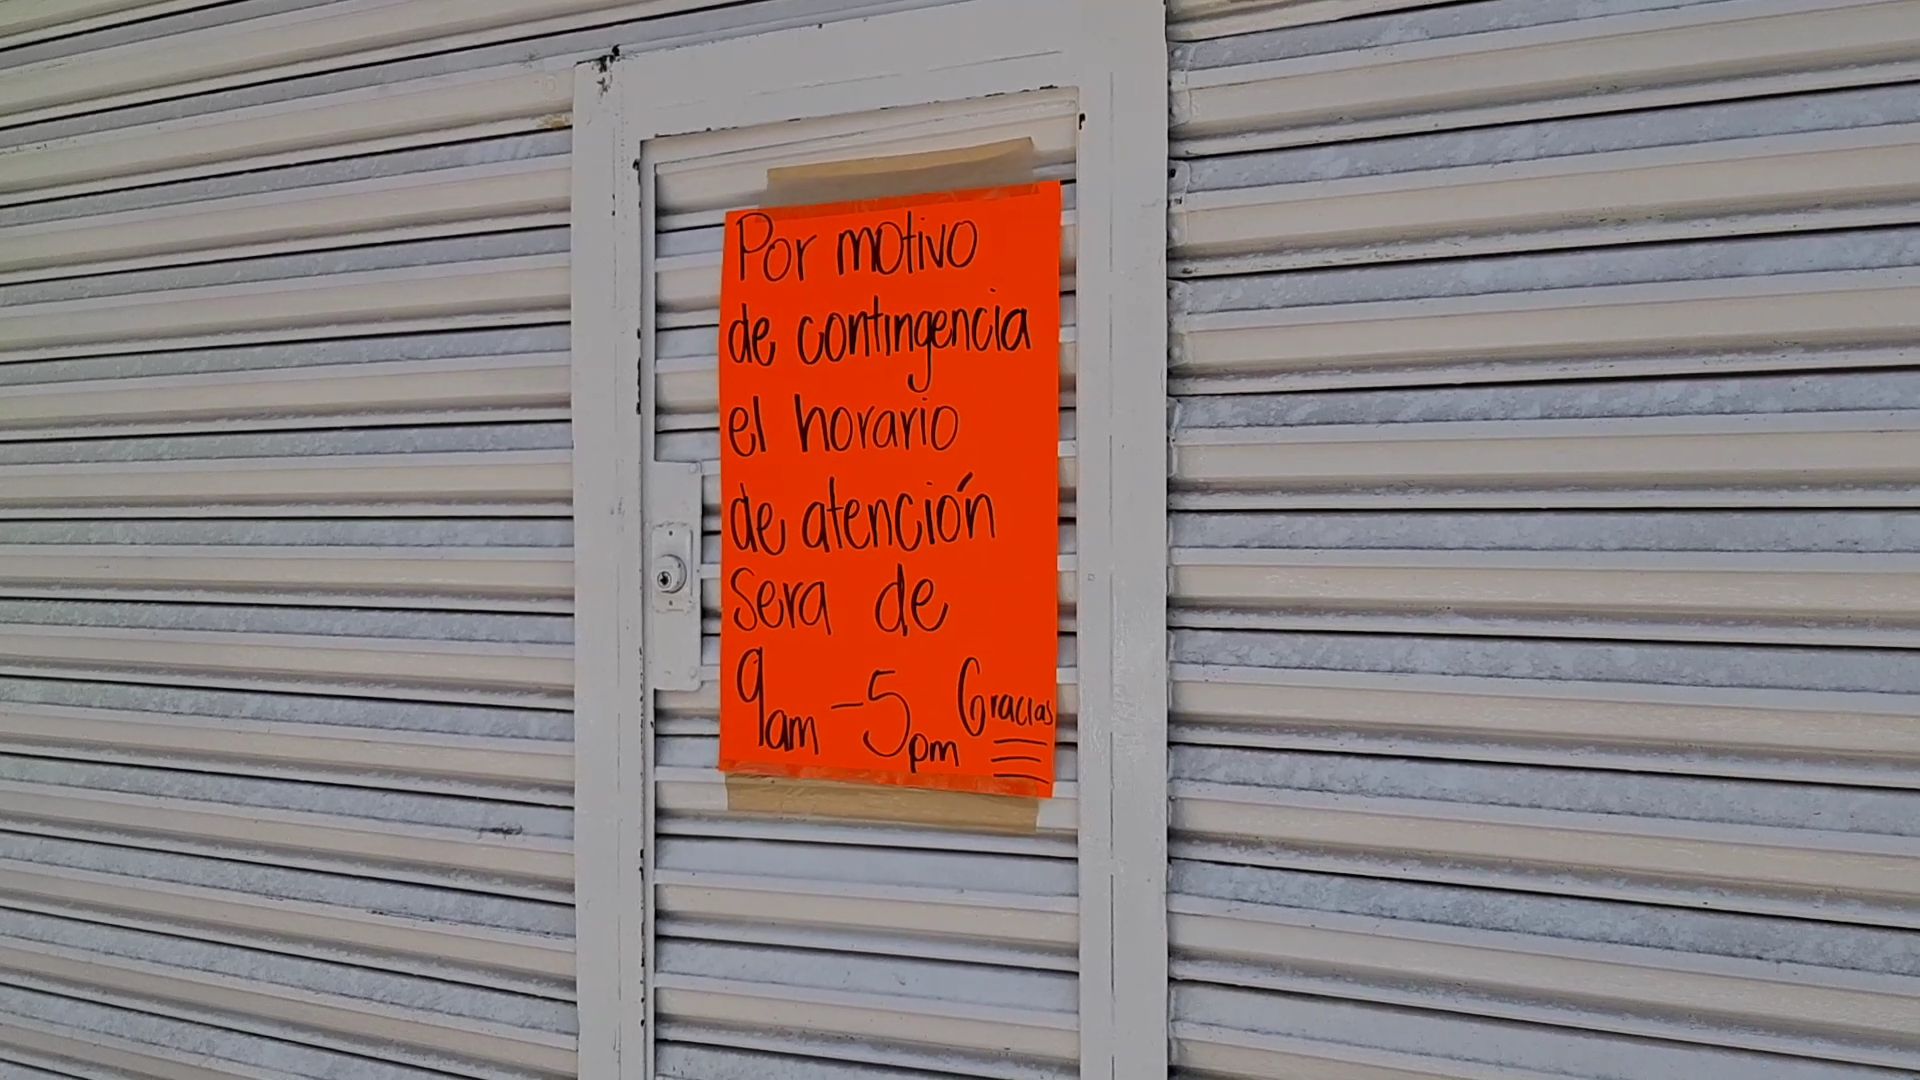 Por motivo
de contingencia
el horario
de atención
sera de
9am - 5pm Gracias